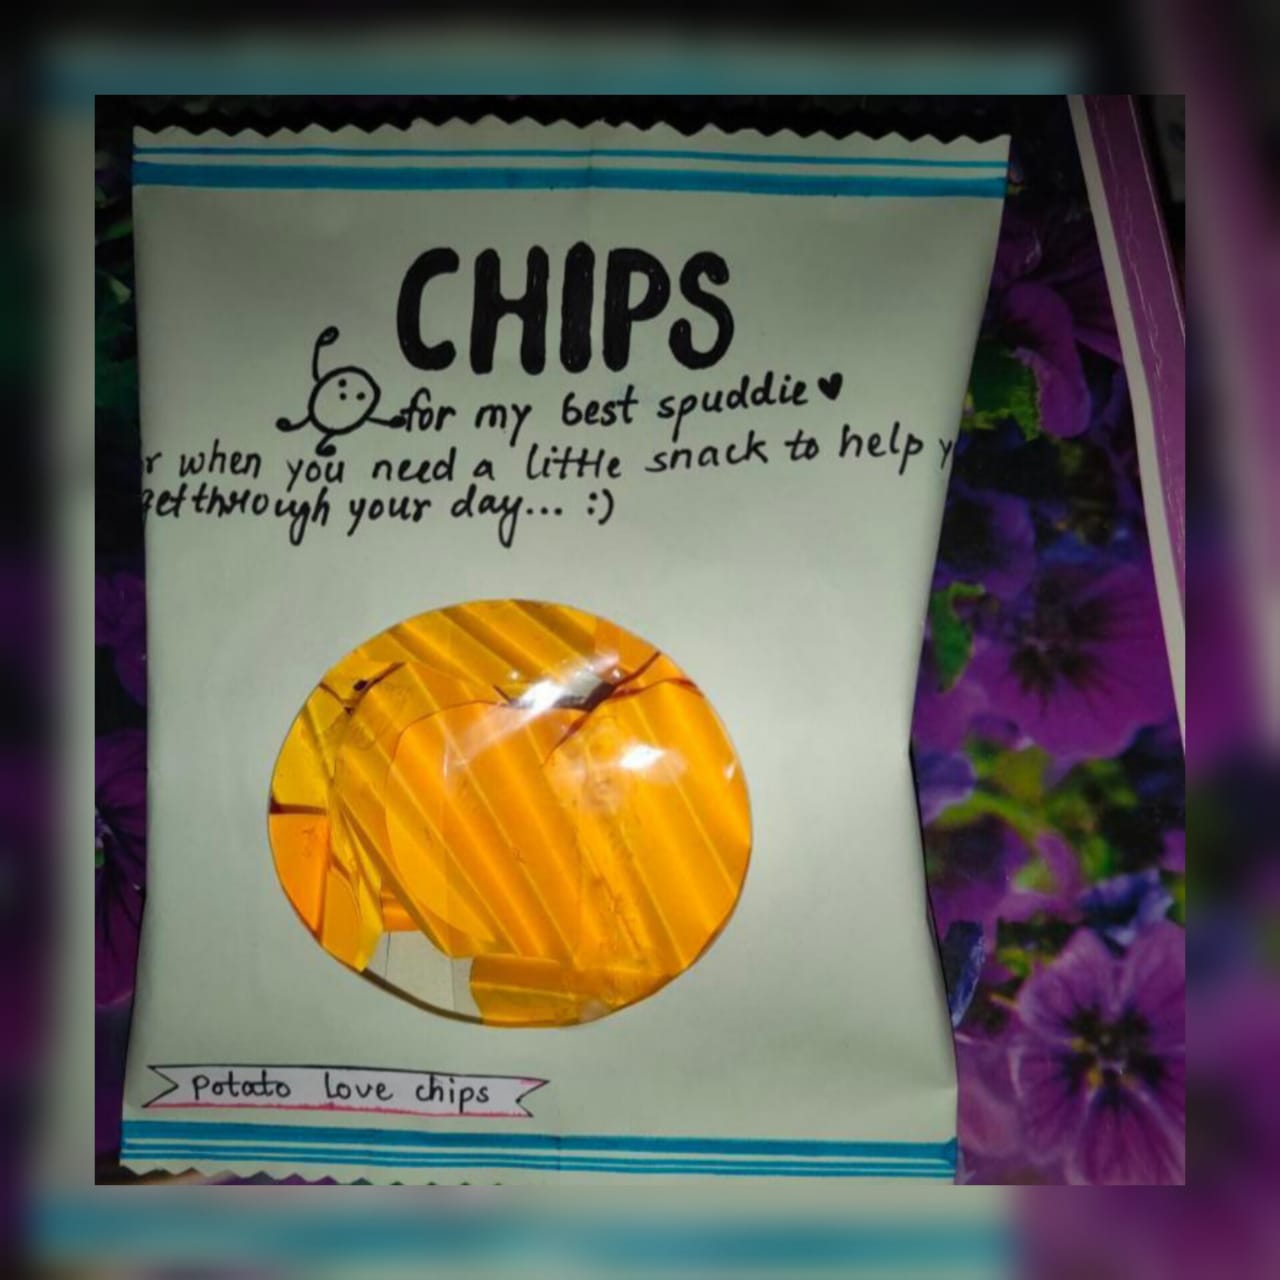 CHIPS
for my best spuddie♥
r when you need a little snack to help y
get through your day... :)
potato love chips